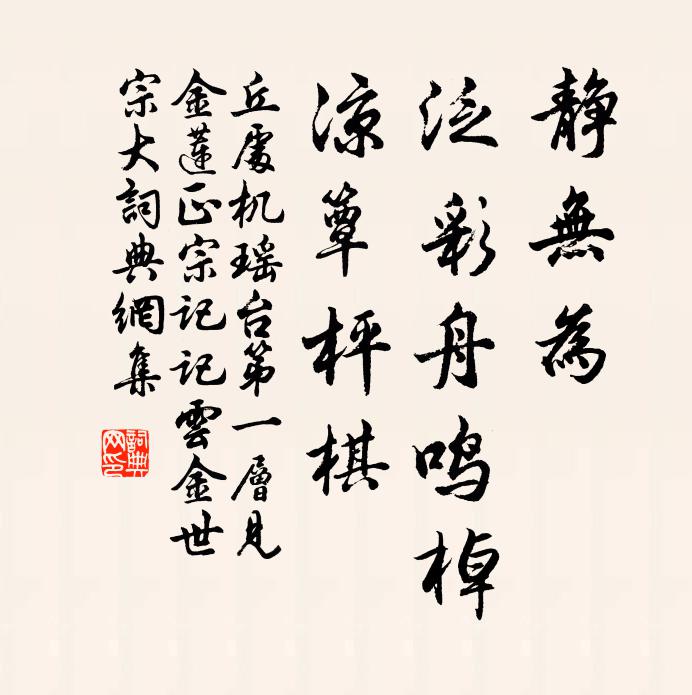 静無為
泛彩舟鳴棹
凉簟枰棋
丘處机瑶台第一層見
金蓮正宗記記雲金世
宗大詞典網集
詞典網印